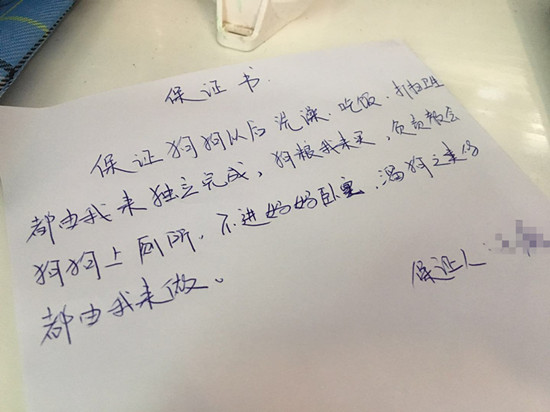 保证书
保证狗狗以后洗澡、吃饭、打扫卫生
都由我来独立完成，狗粮我来买，负责教会
狗狗上厕所，不进妈妈卧室，遛狗之事
都由我来做。
保证人